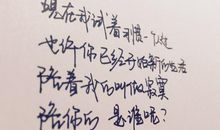 现在我试着习惯一个人
也许你已经开始新的生活
陪着我的叫做寂寞
陪你的 是谁呢?